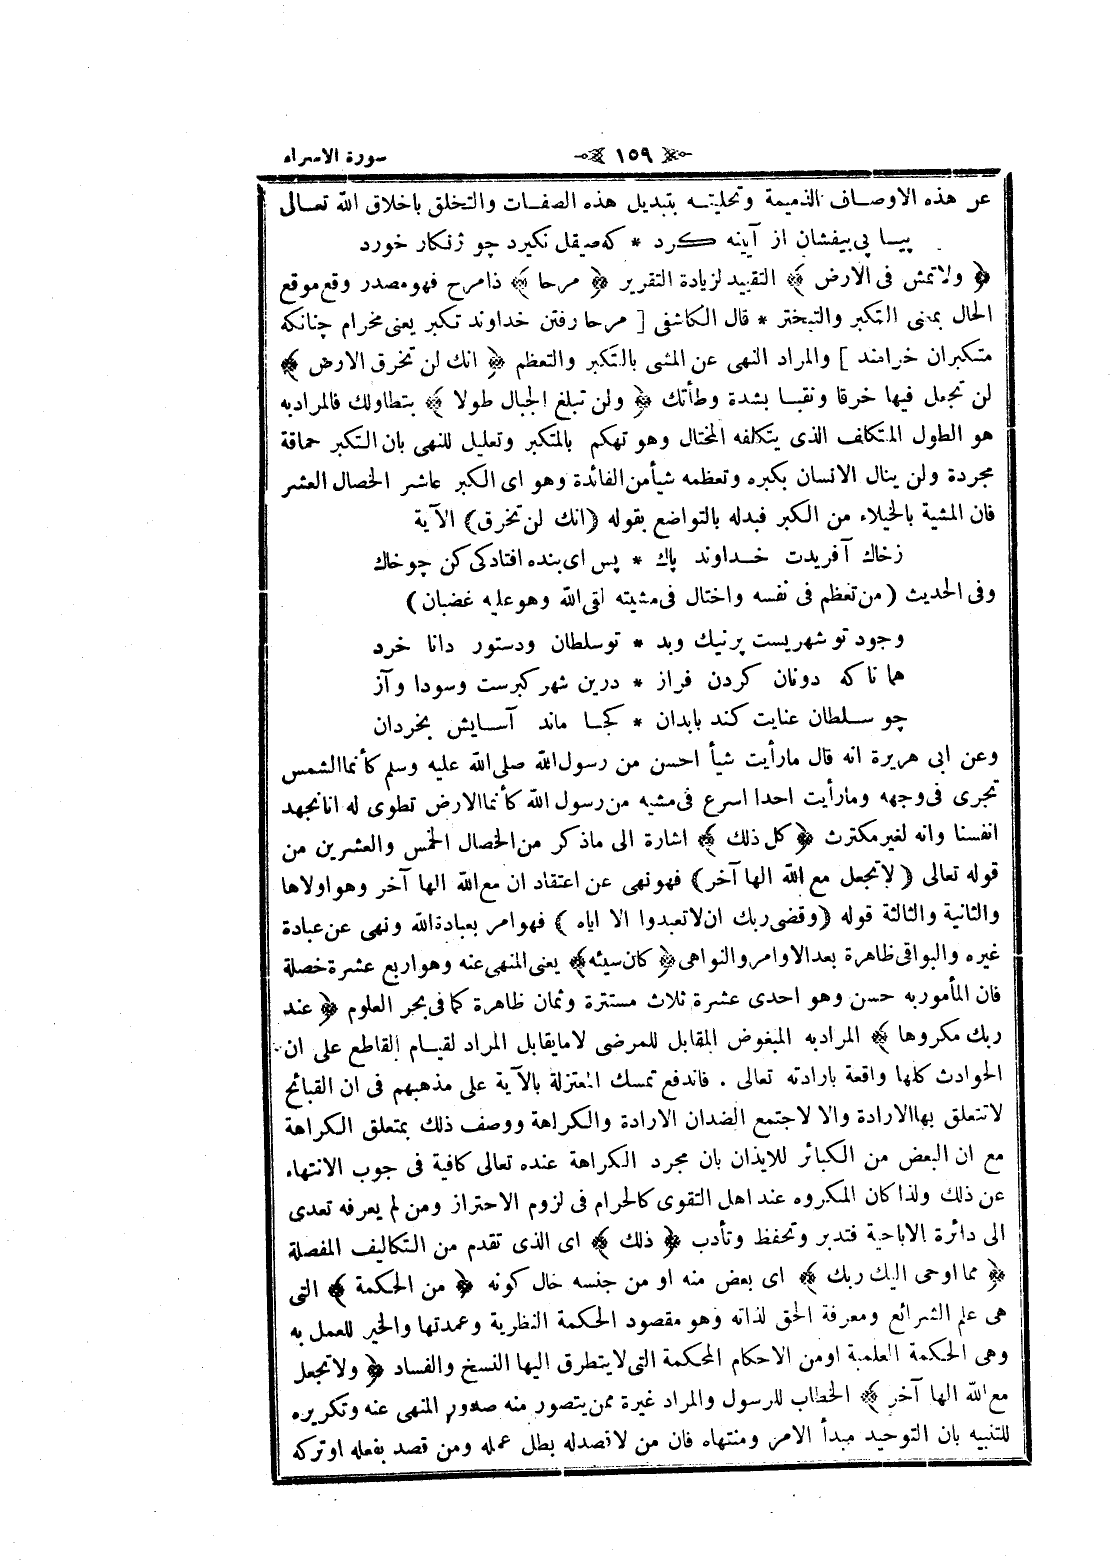 سورة الاسراء
١٥٩
عن هذه الاوصاف الذميمة وتحليته بتبديل هذه الصفات والتخلق باخلاق الله تعالى
پيا پى بيفشان از آيينه كرد * كه صيقل نكيرد چو ژنكار خورد
﴿ ولا تمش فى الارض ﴾ التقييد لزيادة التقرير ﴿ مرحا ﴾ ذا مرح فهو مصدر وقع موقع
الحال بمعنى التكبر والتبختر * قال الكاشفى [ مرحا رفتن خداوند تكبر يعنى مخرام چنانكه
متكبران خرامند ] والمراد النهى عن المشى بالتكبر والتعظم ﴿ انك لن تخرق الارض ﴾
لن تجعل فيها خرقا ونقبا بشدة وطأتك ﴿ ولن تبلغ الجبال طولا ﴾ بتطاولك فالمراد به
هو الطول المتكلف الذى يتكلفه المختال وهو تهكم بالمتكبر وتعليل للنهى بان التكبر حماقة
مجردة ولن ينال الانسان بكبره وتعظمه شيأ من الفائدة وهو اى الكبر عاشر الخصال العشر
فان المشية بالخيلاء من الكبر فبدله بالتواضع بقوله (انك لن تخرق) الآية
زخاك آفريدت خداوند پاك * پس اى بنده افتادكى كن چو خاك
وفى الحديث (من تعظم فى نفسه واختال فى مشيته لقى الله وهو عليه غضبان)
وجود تو شهريست پر نيك وبد * تو سلطان ودستور دانا خرد
همانا كه دونان كردن فراز * درين شهر كبرست وسودا وآز
چو سلطان عنايت كند بابدان * كجا ماند آسايش بخردان
وعن ابى هريرة انه قال ما رأيت شيأ احسن من رسول الله صلى الله عليه وسلم كأنما الشمس
تجرى فى وجهه وما رأيت احدا اسرع فى مشيه من رسول الله كأنما الارض تطوى له انا نجهد
انفسنا وانه لغير مكترث ﴿ كل ذلك ﴾ اشارة الى ماذكر من الخصال الخمس والعشرين من
قوله تعالى (لا تجعل مع الله الها آخر) فهو نهى عن اعتقاد ان مع الله الها آخر وهو اولاها
والثانية والثالثة قوله (وقضى ربك ان لا تعبدوا الا اياه) فهو امر بعبادة الله ونهى عن عبادة
غيره والبواقى ظاهرة بعد الاوامر والنواهى ﴿ كان سيئه ﴾ يعنى المنهى عنه وهو اربع عشرة خصلة
فان المأمور به حسن وهو احدى عشرة ثلاث مستترة وثمان ظاهرة كما فى بحر العلوم ﴿ عند
ربك مكروها ﴾ المراد به المبغوض المقابل للمرضى لا ما يقابل المراد لقيام القاطع على ان
الحوادث كلها واقعة بارادته تعالى . فاندفع تمسك المعتزلة بالآية على مذهبهم فى ان القبائح
لا تتعلق بها الارادة والا لاجتمع الضدان الارادة والكراهة ووصف ذلك بمتعلق الكراهة
مع ان البعض من الكبائر للايذان بان مجرد الكراهة عنده تعالى كافية فى جوب الانتهاء
عن ذلك ولذا كان المكروه عند اهل التقوى كالحرام فى لزوم الاحتراز ومن لم يعرفه تعدى
الى دائرة الاباحية فتدبر وتحفظ وتأدب ﴿ ذلك ﴾ اى الذى تقدم من التكاليف المفصلة
﴿ مما اوحى اليك ربك ﴾ اى بعض منه او من جنسه حال كونه ﴿ من الحكمة ﴾ التى
هى علم الشرائع ومعرفة الحق لذاته وهو مقصود الحكمة النظرية وعمدتها والخير للعمل به
وهى الحكمة العلمية او من الاحكام المحكمة التى لا يتطرق اليها النسخ والفساد ﴿ ولا تجعل
مع الله الها آخر ﴾ الخطاب للرسول والمراد غيره ممن يتصور منه صدور المنهى عنه وتكريره
للتنبيه بان التوحيد مبدأ الامر ومنتهاه فان من لا قصد له بطل عمله ومن قصد بفعله او تركه